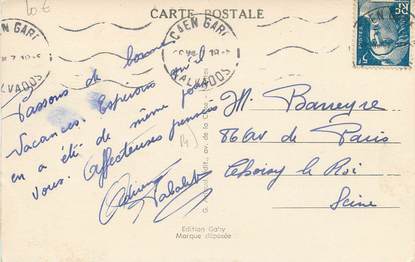 10 €
CARTE POSTALE
CJEN GARE
CALVADOS
CJEN GARE
CALVADOS
Passons de bonnes
vacances. Espérons qu'il
en a été de même pour
vous. Affectueuses pensées
M. Barreyre
86 Av de Paris
Choisy le Roi
Seine
Edition Gaby
Marque déposée